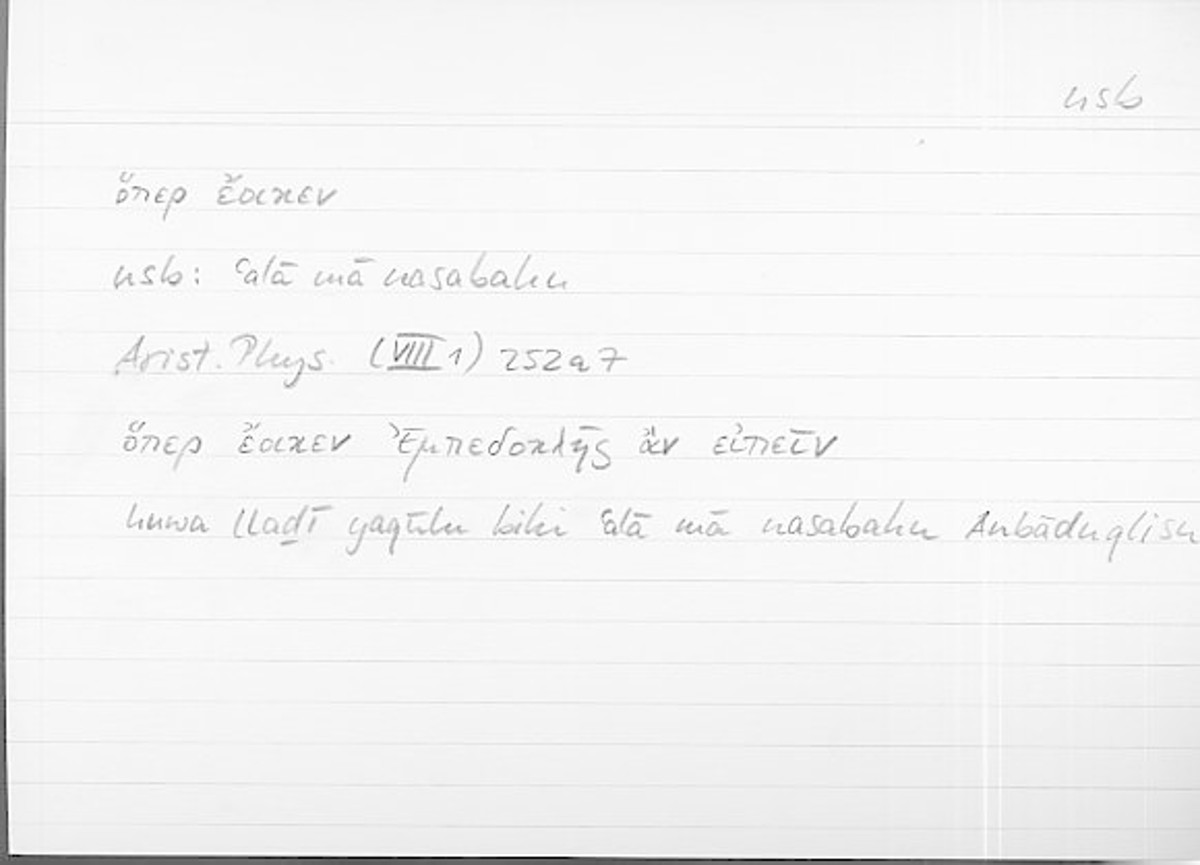 nsb
ὅπερ ἔοικεν
nsb: ʿalā mā nasabahu
Arist. Phys. (VIII 1) 252a7
ὅπερ ἔοικεν Ἐμπεδοκλῆς ἂν εἰπεῖν
huwa lladī yaqūlu bihi ʿalā mā nasabahu Anbāduqlisu